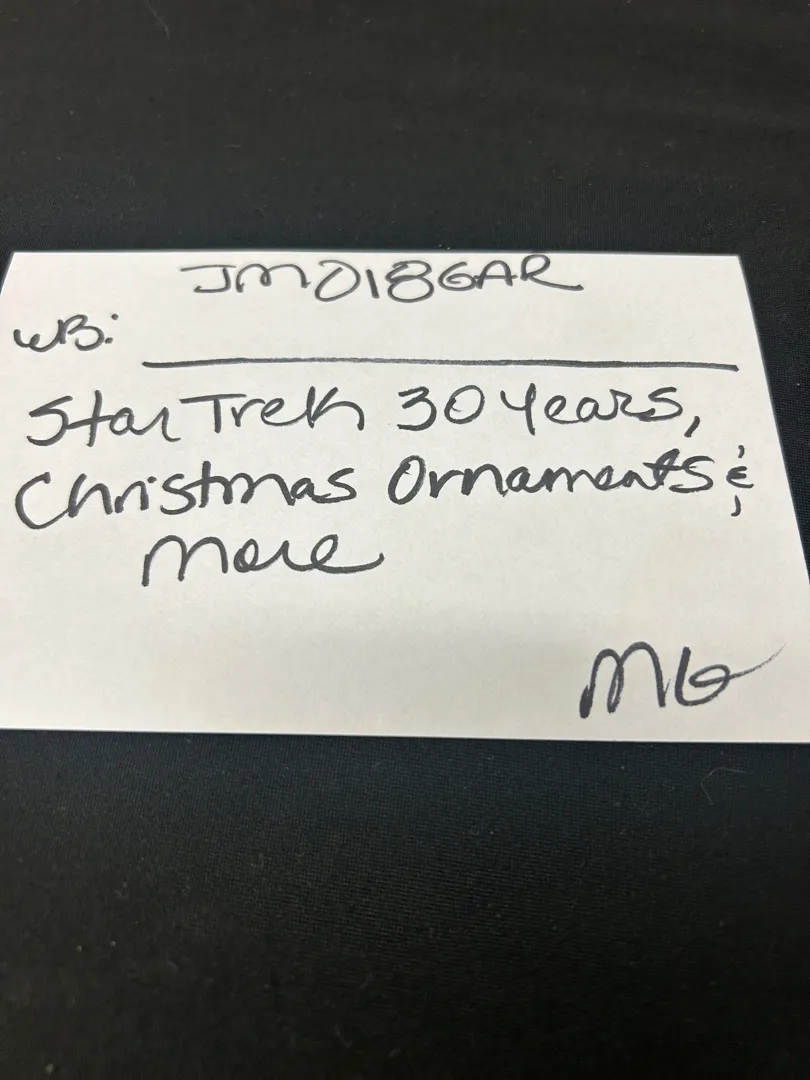 JM0186AR
WB:
Star Trek 30 Years,
Christmas Ornaments &
more
MG